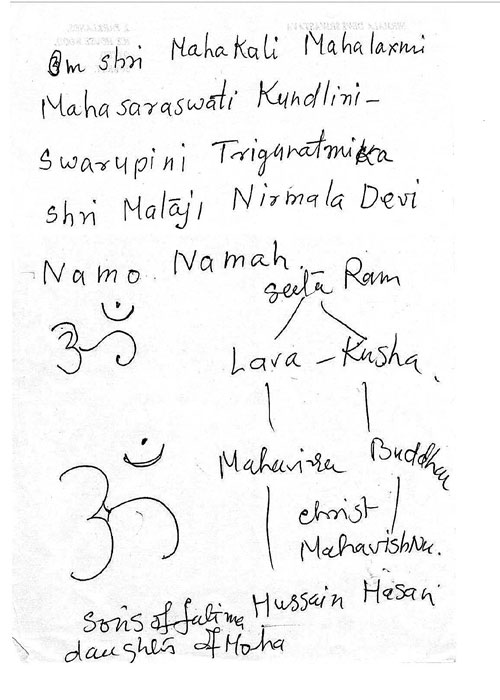 Om shri Mahakali Mahalaxmi
Mahasaraswati Kundlini-
Swarupini Trigunatmikka
Shri Matāji Nirmala Devi
Namo Namah.
seetā Ram
ॐ
Lava - Kusha
Mahavira Buddha
ॐ
christ
Mahavishnu.
Hussain Hasan
sons of fatima
daughter of Moha